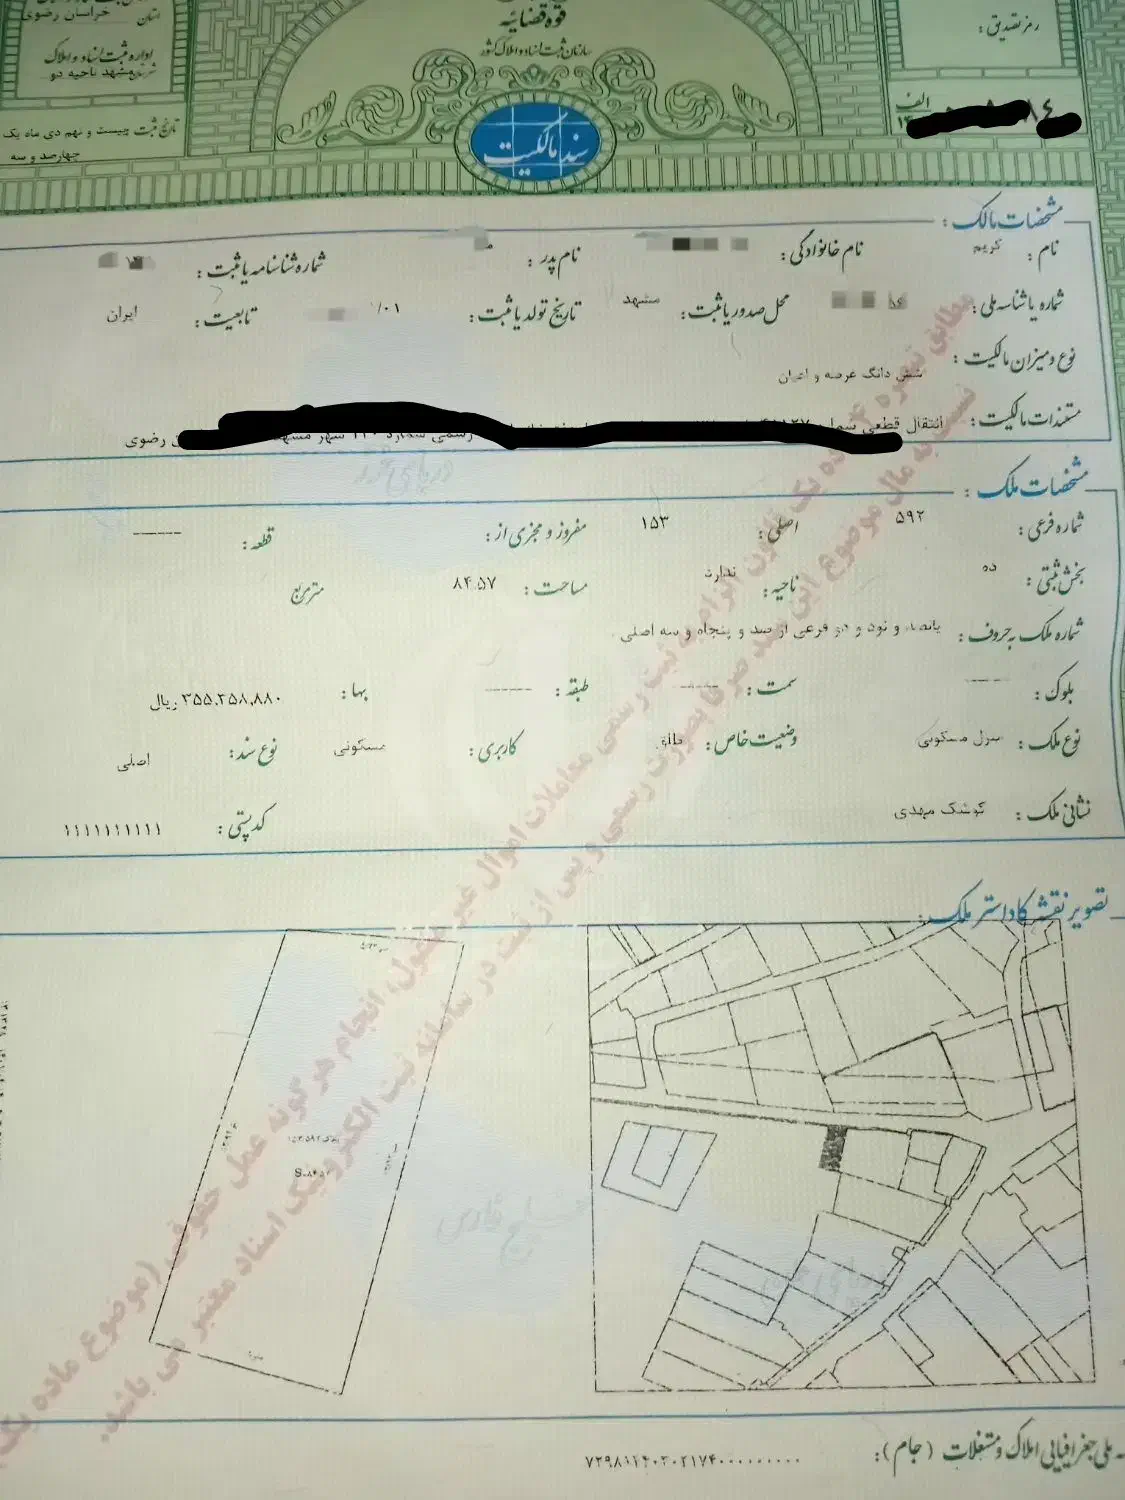 استان خراسان رضوی
اداره ثبت اسناد و املاک
مشهد ناحیه دو
تاریخ ثبت بیست و نهم دی ماه یک
چهارصد و سه
قوه قضائیه
سازمان ثبت اسناد و املاک کشور
سند مالکیت
رمز تصدیق :
الف
مشخصات مالک :
نام : کریم
نام خانوادگی :
نام پدر :
شماره شناسنامه یا ثبت :
شماره یا شناسه ملی :
محل صدور یا ثبت : مشهد
تاریخ تولد یا ثبت : /۰۱
تابعیت : ایران
نوع و میزان مالکیت : شش دانگ عرصه و اعیان
مستندات مالکیت : انتقال قطعی رضوی
مشخصات ملک :
شماره فرعی : ۵۹۲
اصلی : ۱۵۳
مفروز و مجزی از :
قطعه : ------
بخش ثبتی : ده
ناحیه : ندارد
مساحت : ۸۴.۵۷ متر مربع
شماره ملک به حروف : پانصد و نود و دو فرعی از صد و پنجاه و سه اصلی
بلوک : ------
سمت : ------
طبقه : ------
بها : ۳۵۵,۲۵۸,۸۸۰ ریال
نوع ملک : منزل مسکونی
وضعیت خاص : طلق
کاربری : مسکونی
نوع سند : اصلی
نشانی ملک : کوشک مهدی
کد پستی : ۱۱۱۱۱۱۱۱۱۱
تصویر نقشه کاداستر ملک :
مطابق تبصره ۴ ماده یک قانون الزام به ثبت رسمی معاملات اموال غیر منقول، انجام هر گونه عمل حقوقی (موضوع ماده یک
نسبت به مال موضوع این سند صرفا بصورت رسمی و پس از ثبت در سامانه ثبت الکترونیک اسناد معتبر می باشد.
دریای خزر
خلیج فارس
ملی جغرافیایی املاک و مستغلات (جام) : ۷۲۹۸۱۲۴۰۳۰۲۱۷۴۰۰۰۰۰۰۰۰۰۰